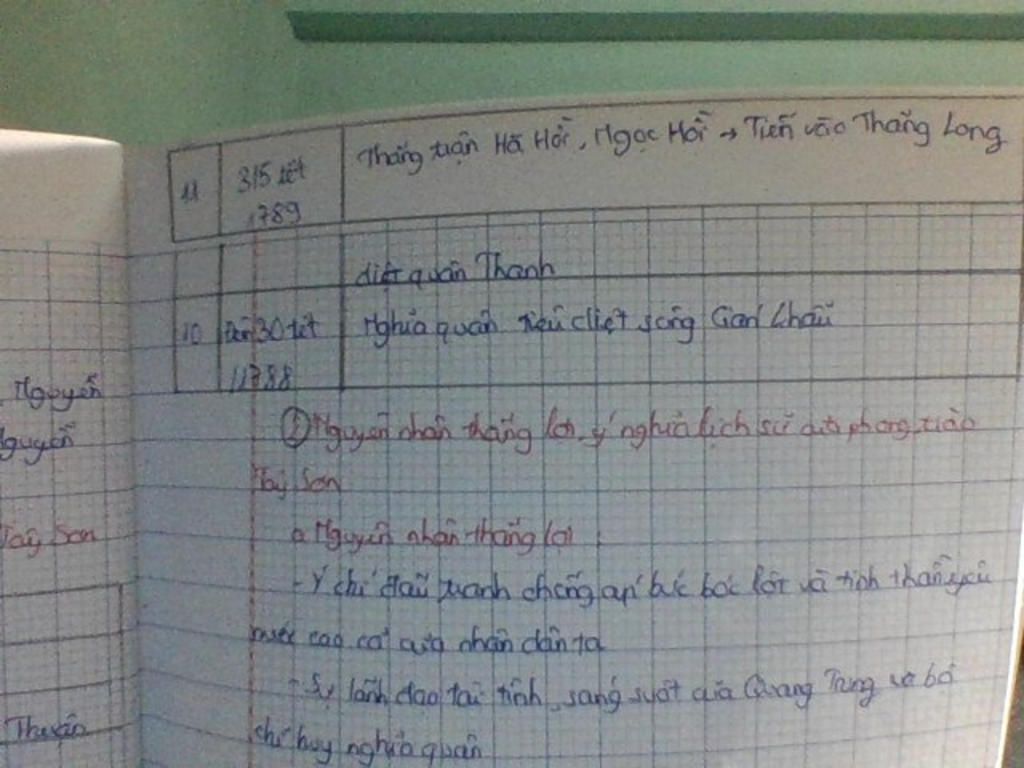 11 3/5 tết Thắng trận Hà Hồi, Ngọc Hồi → Tiến vào Thăng Long
1789
diệt quân Thanh
10 Đến 30 tết Nghĩa quân tiêu diệt sông Gián Khẩu
1788
Nguyễn
guyễn
② Nguyên nhân thắng lợi, ý nghĩa lịch sử của phong trào
Tây Sơn
Tây Sơn
a Nguyên nhân thắng lợi :
- Ý chí đấu tranh chống áp bức bóc lột và tinh thần yêu
nước cao cả của nhân dân ta
- Sự lãnh đạo tài tình, sáng suốt của Quang Trung và bộ
Thuận
chỉ huy nghĩa quân